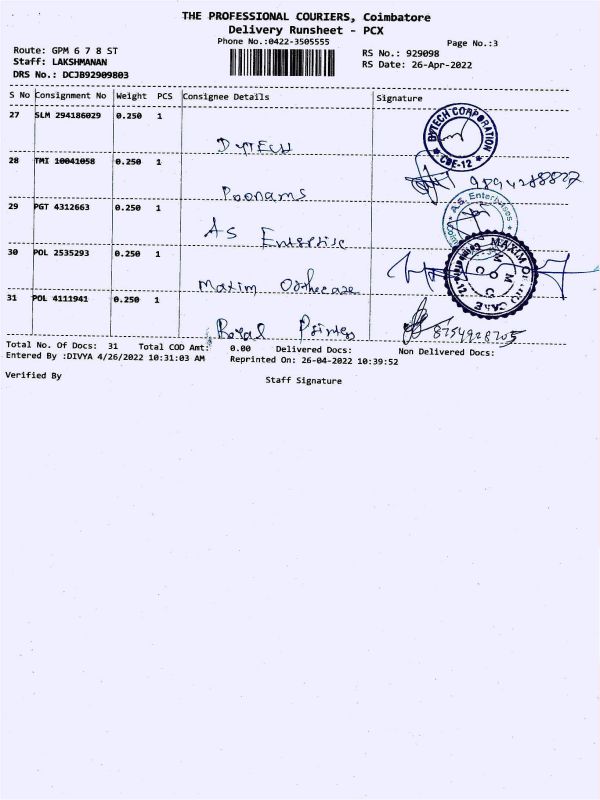 THE PROFESSIONAL COURIERS, Coimbatore
Delivery Runsheet - PCX
Phone No.:0422-3505555
Page No.:3
Route: GPM 6 7 8 ST
Staff: LAKSHMANAN
DRS No.: DCJB92909803
RS No.: 929098
RS Date: 26-Apr-2022
S No Consignment No Weight PCS Consignee Details Signature
27 SLM 294186029 0.250 1
DYTECH
BYTECH CORPORATION
★ CBE-12 ★
28 TMI 10041058 0.250 1
Poonams
29 PGT 4312663 0.250 1
AS Entetrise
A.S. Enterprises
30 POL 2535293 0.250 1
Maxim Orthecare
31 POL 4111941 0.250 1
Royal Printers
8754928705
Total No. Of Docs: 31 Total COD Amt: 0.00 Delivered Docs: Non Delivered Docs:
Entered By :DIVYA 4/26/2022 10:31:03 AM Reprinted On: 26-04-2022 10:39:52
Verified By
Staff Signature